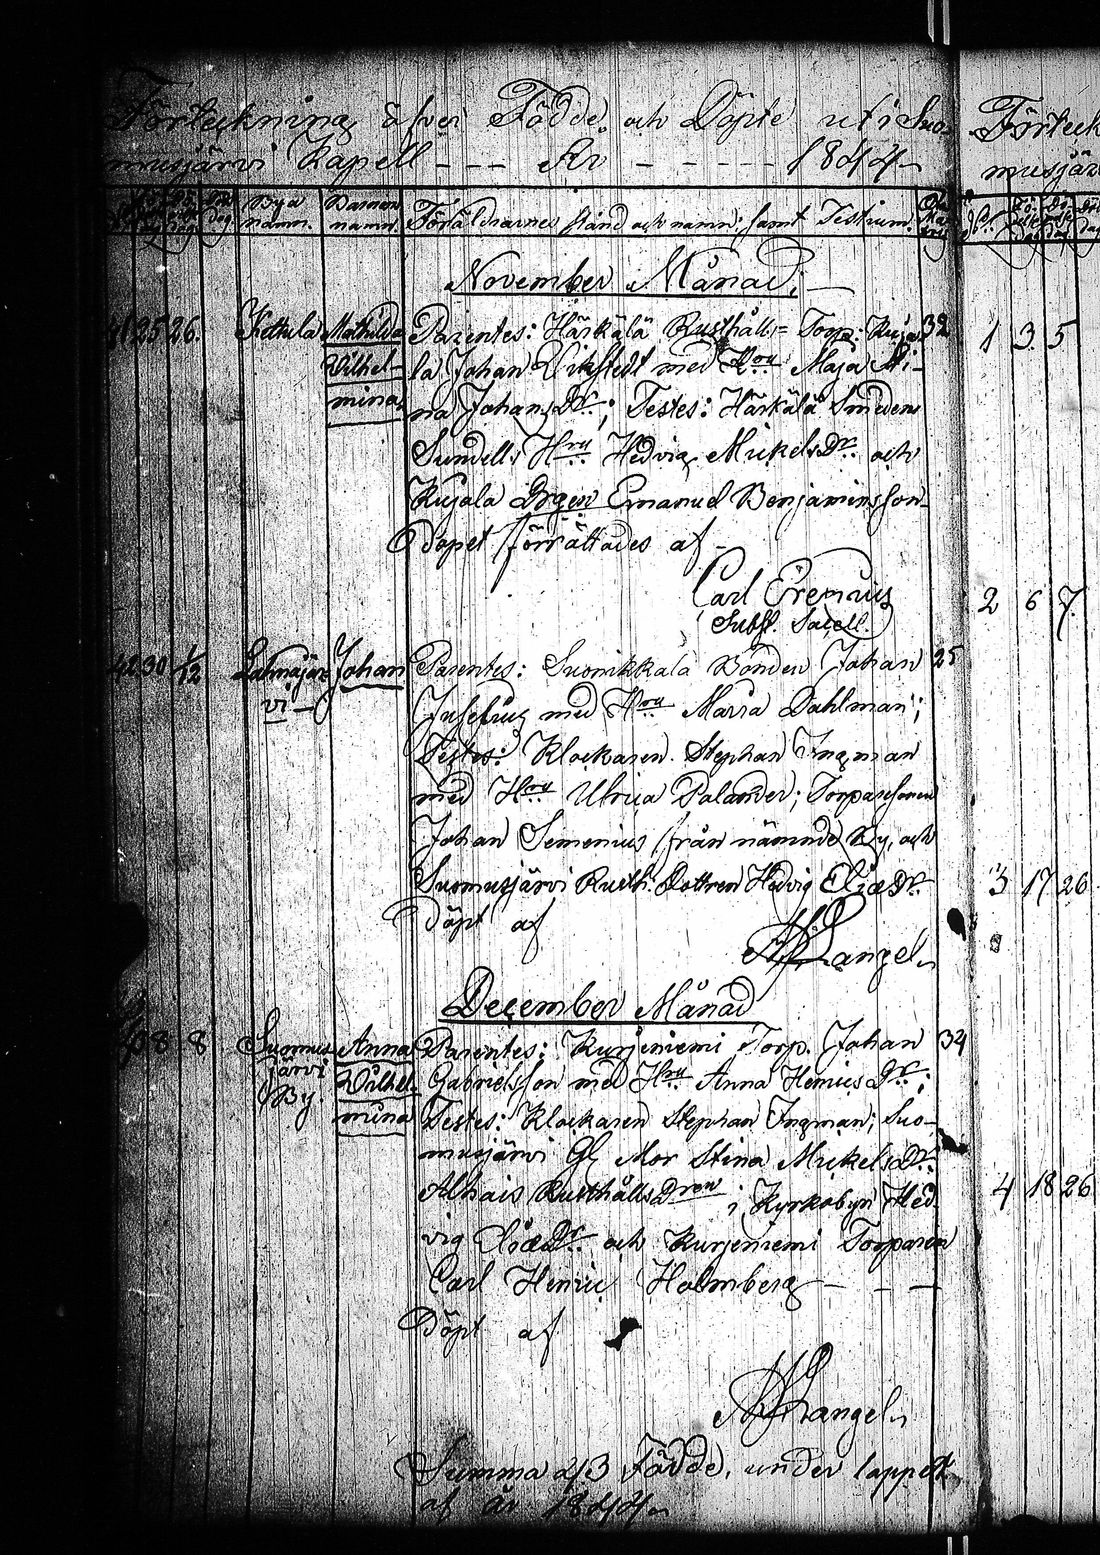 Förteckning öfver Födde och Döpte uti Suo-
musjärvi Kapell - - - År - - - - - 1844
Bya namn. Barnens namn. Föräldrarnes stånd och namn, samt Testium.
November Månad;
41 25 26. Kettula Mathilda Parentes: Härkälä Rusthålls= Torp: Kuja- 32
Vilhel- la Johan Vikstedt med Hru Maja Mi-
mina na JohansDr.; Testes: Härkälä Smedens
Sundells Hru Hedvig MickelsDr. och
Kujala Drgen Emanuel Benjaminsson
Dopet förrättades af
Carl Erenius
Subst. Sacell.
42 30 1/12 Lahnajär- Johan Parentes: Suonikkala Bonden Johan 25
vi Josefus med Hru Maria Dahlman;
Testes: Klockaren Stephan Ingman
med Hru Ulrica Palander; Torparesonen
Johan Semenius från nämnde By, och
Suomusjärvi Rusth. Dottren Hedvig EliæDr.
Döpt af
December Månad
8 8 Suomus- Anna Parentes: Kurjeniemi Torp. Johan 34
järvi Vilhel- Gabrielsson med Hru Anna HenricsDr.;
By. mina Testes: Klockaren Stephan Ingman; Suo-
musjärvi Gl. Mor Stina MickelsDr.
RusthållsDren i Kyrkobyn Hed-
vig EliæDr. och Kurjeniemi Torparen
Carl Henric Holmberg - - -
Döpt af
Summa 43 Födde, under loppet
af År 1844
Förteck
musjär
1 3. 5
2 6 7.
3 17 26
4 18 26